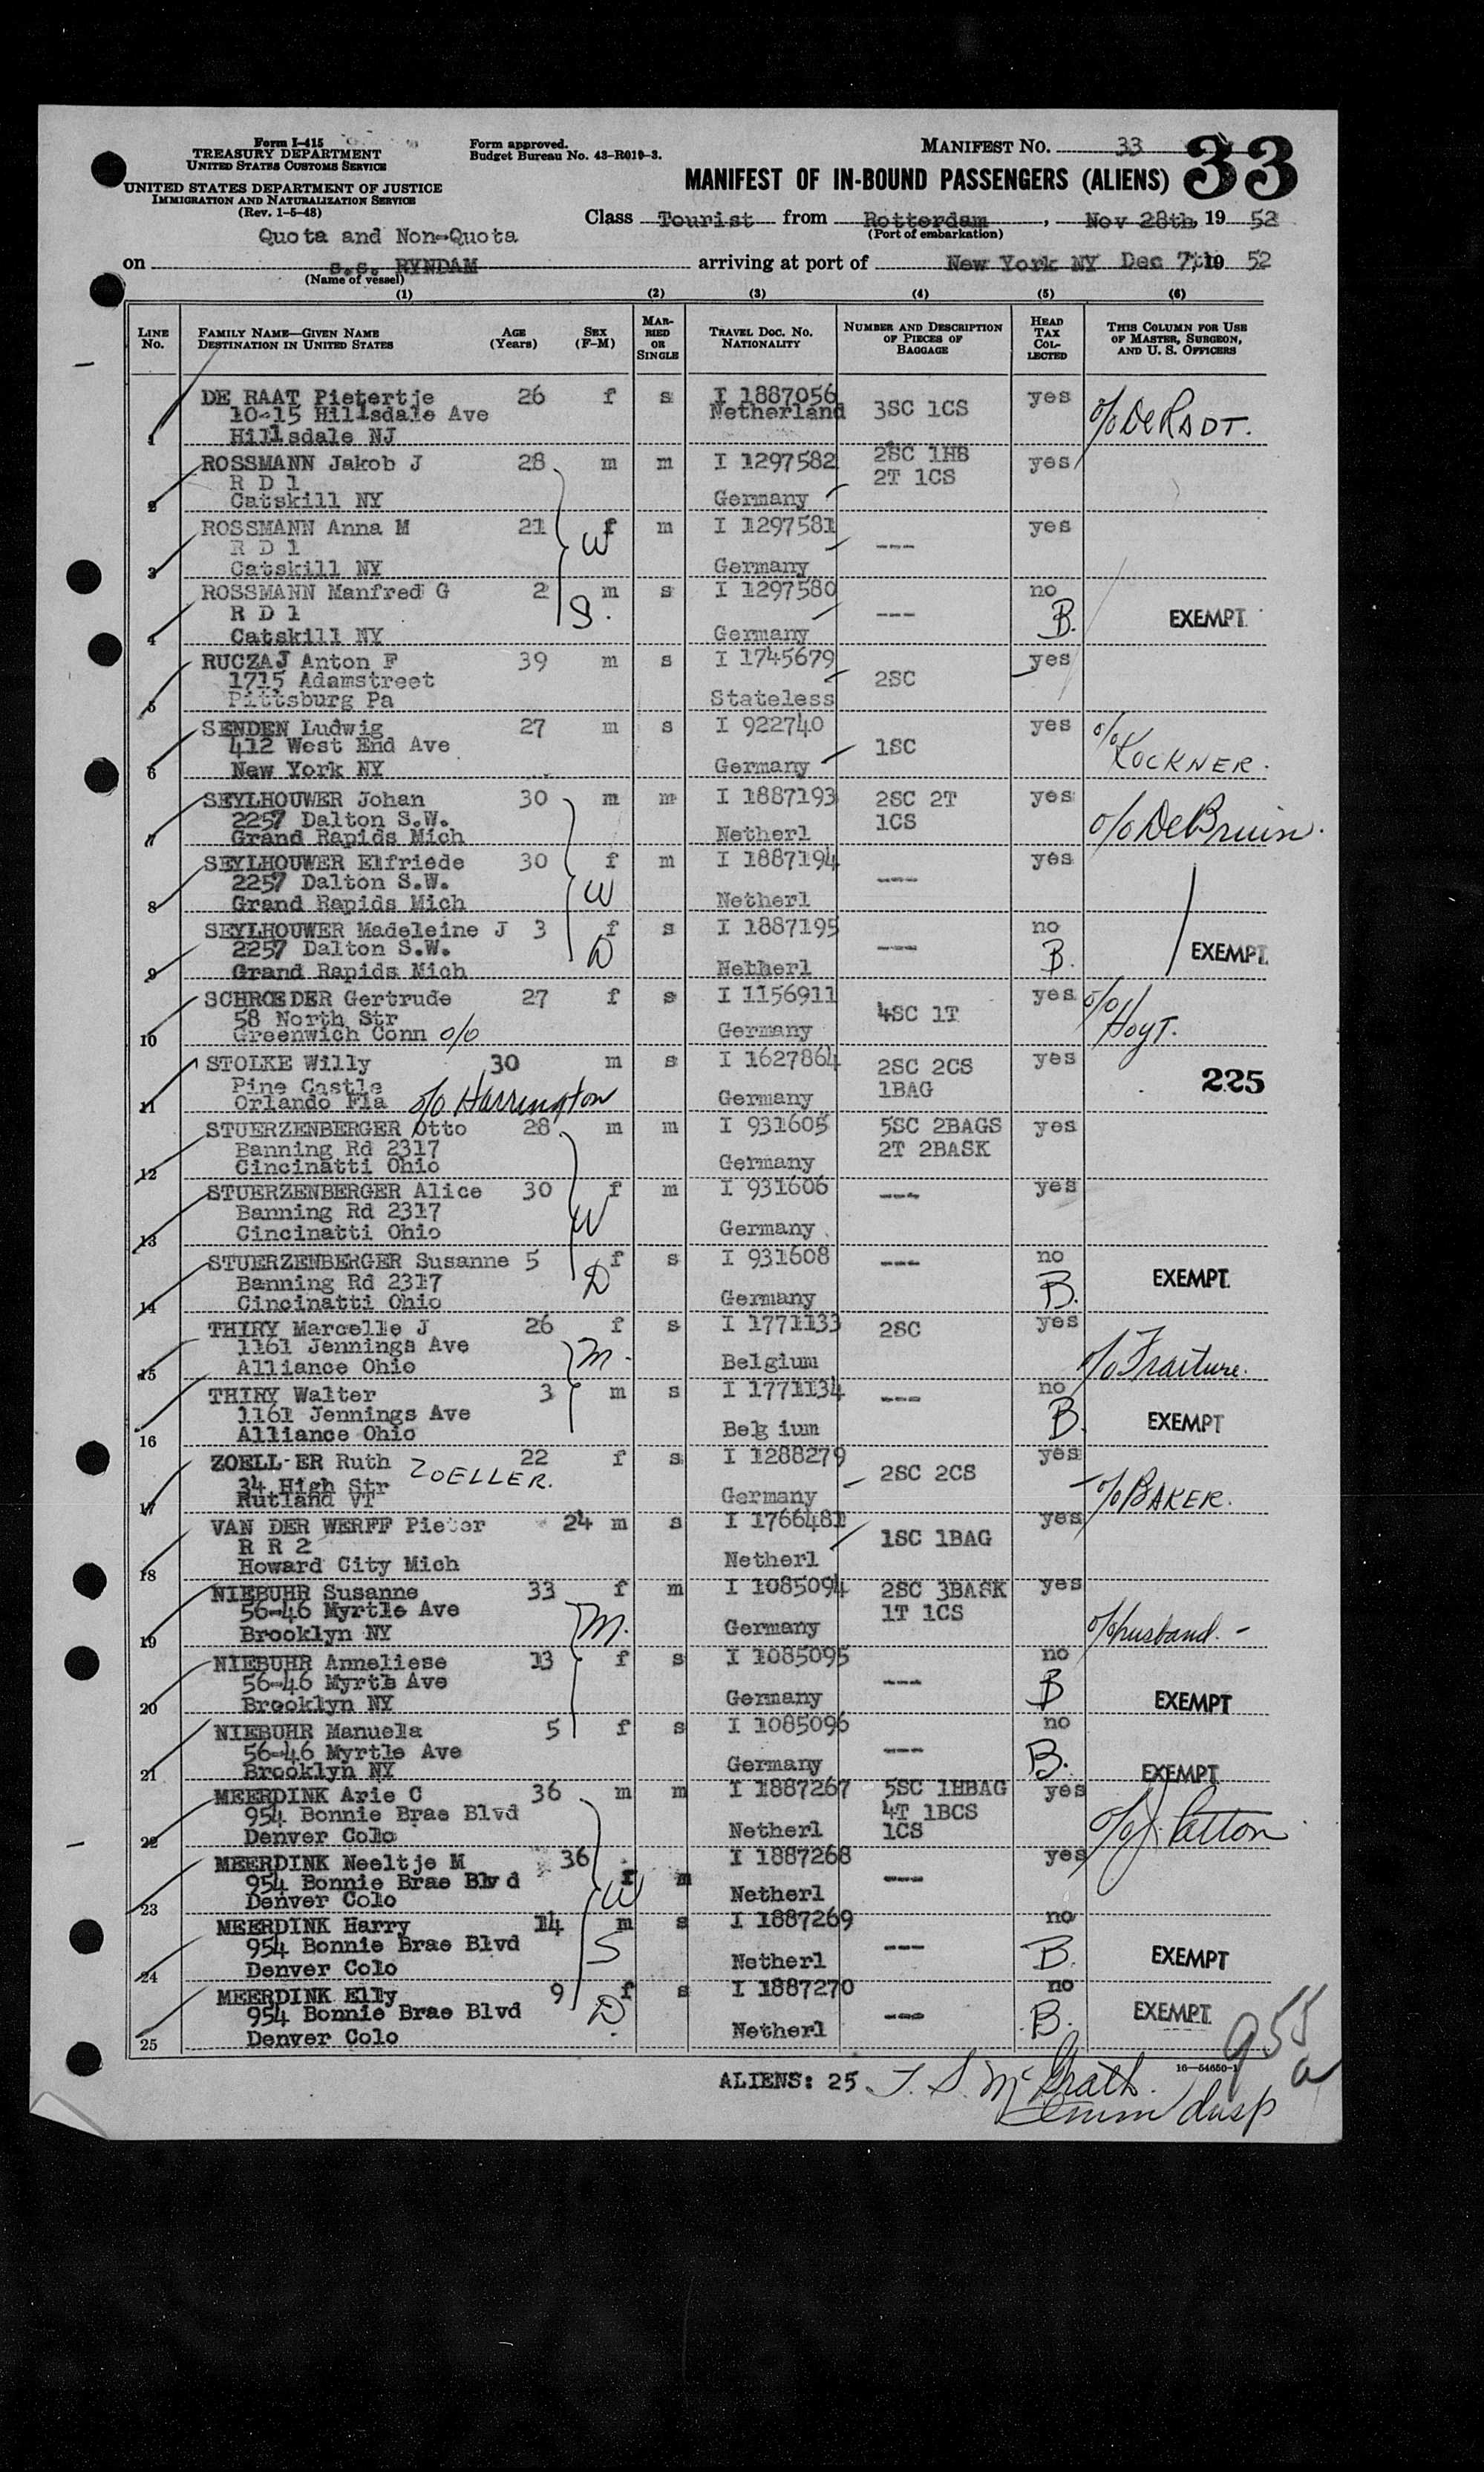 Form I-415
TREASURY DEPARTMENT
UNITED STATES CUSTOMS SERVICE
UNITED STATES DEPARTMENT OF JUSTICE
IMMIGRATION AND NATURALIZATION SERVICE
(Rev. 1-5-48)
Form approved.
Budget Bureau No. 43-R019-3.
MANIFEST NO. 33
33
MANIFEST OF IN-BOUND PASSENGERS (ALIENS)
Class Tourist from Rotterdam, Nov 28th, 19 52
(Port of embarkation)
Quota and Non-Quota
on s.s. RYNDAM arriving at port of New York NY Dec 7th, 19 52
(Name of vessel)
(1) (2) (3) (4) (5) (6)
LINE NO. FAMILY NAME—GIVEN NAME DESTINATION IN UNITED STATES AGE (Years) SEX (F-M) MARRIED OR SINGLE TRAVEL DOC. NO. NATIONALITY NUMBER AND DESCRIPTION OF PIECES OF BAGGAGE HEAD TAX COLLECTED THIS COLUMN FOR USE OF MASTER, SURGEON, AND U. S. OFFICERS
DE RAAT Pietertje 26 f s I 1887056 yes
10-15 Hillsdale Ave Netherland 3SC 1CS c/o De RADT.
1 Hillsdale NJ
ROSSMANN Jakob J 28 m m I 1297582 2SC 1HB yes
R D 1 2T 1CS
2 Catskill NY Germany
ROSSMANN Anna M 21 f m I 1297581 yes
R D 1 W ---
3 Catskill NY Germany
ROSSMANN Manfred G 2 m s I 1297580 no
R D 1 S. --- B. EXEMPT
4 Catskill NY Germany
RUCZAJ Anton F 39 m s I 1745679 yes
1715 Adamstreet 2SC
5 Pittsburg Pa Stateless
SENDEN Ludwig 27 m s I 922740 yes
412 West End Ave 1SC c/o KOCKNER.
6 New York NY Germany
SEYLHOUWER Johan 30 m m I 1887193 2SC 2T yes
2257 Dalton S.W. 1CS c/o DeBruin.
7 Grand Rapids Mich Netherl
SEYLHOUWER Elfriede 30 f m I 1887194 yes
2257 Dalton S.W. W ---
8 Grand Rapids Mich Netherl
SEYLHOUWER Madeleine J 3 f s I 1887195 no
2257 Dalton S.W. D --- B. EXEMPT
9 Grand Rapids Mich Netherl
SCHROEDER Gertrude 27 f s I 1156911 yes c/o
58 North Str 4SC 1T Hoyt.
10 Greenwich Conn c/o Germany
STOLKE Willy 30 m s I 1627864 2SC 2CS yes
Pine Castle 1BAG 225
11 Orlando Fla c/o Harrington Germany
STUERZENBERGER Otto 28 m m I 931605 5SC 2BAGS yes
Banning Rd 2317 2T 2BASK
12 Cincinatti Ohio Germany
STUERZENBERGER Alice 30 f m I 931606 --- yes
Banning Rd 2317 W
13 Cincinatti Ohio Germany
STUERZENBERGER Susanne 5 f s I 931608 --- no
Banning Rd 2317 D B. EXEMPT
14 Cincinatti Ohio Germany
THIRY Marcelle J 26 f s I 1771133 2SC yes
1161 Jennings Ave m. c/o Fraiture.
15 Alliance Ohio Belgium
THIRY Walter 3 m s I 1771134 --- no
1161 Jennings Ave B. EXEMPT
16 Alliance Ohio Belg ium
ZOELL-ER Ruth ZOELLER. 22 f s I 1288279 yes
34 High Str 2SC 2CS c/o BAKER.
17 Rutland VT Germany
VAN DER WERFF Pieter 24 m s I 1766481 yes
R R 2 1SC 1BAG
18 Howard City Mich Netherl
NIEBUHR Susanne 33 f m I 1085094 2SC 3BASK yes
56-46 Myrtle Ave 1T 1CS
19 Brooklyn NY m. Germany c/o husband. -
NIEBUHR Anneliese 13 f s I 1085095 no
56-46 Myrtle Ave --- B EXEMPT
20 Brooklyn NY Germany
NIEBUHR Manuela 5 f s I 1085096 no
56-46 Myrtle Ave --- B. EXEMPT
21 Brooklyn NY Germany
MEERDINK Arie C 36 m m I 1887267 5SC 1HBAG yes
954 Bonnie Brae Blvd 4T 1BCS
22 Denver Colo Netherl 1CS
MEERDINK Neeltje M 36 f m I 1887268 yes
954 Bonnie Brae Blvd W ---
23 Denver Colo Netherl
MEERDINK Harry 14 m s I 1887269 no
954 Bonnie Brae Blvd S --- B. EXEMPT
24 Denver Colo Netherl
MEERDINK Elly 9 f s I 1887270 no
954 Bonnie Brae Blvd D --- B. EXEMPT
25 Denver Colo Netherl
955
16—54650-1
ALIENS: 25 T. S. McGrath.
Imm Insp